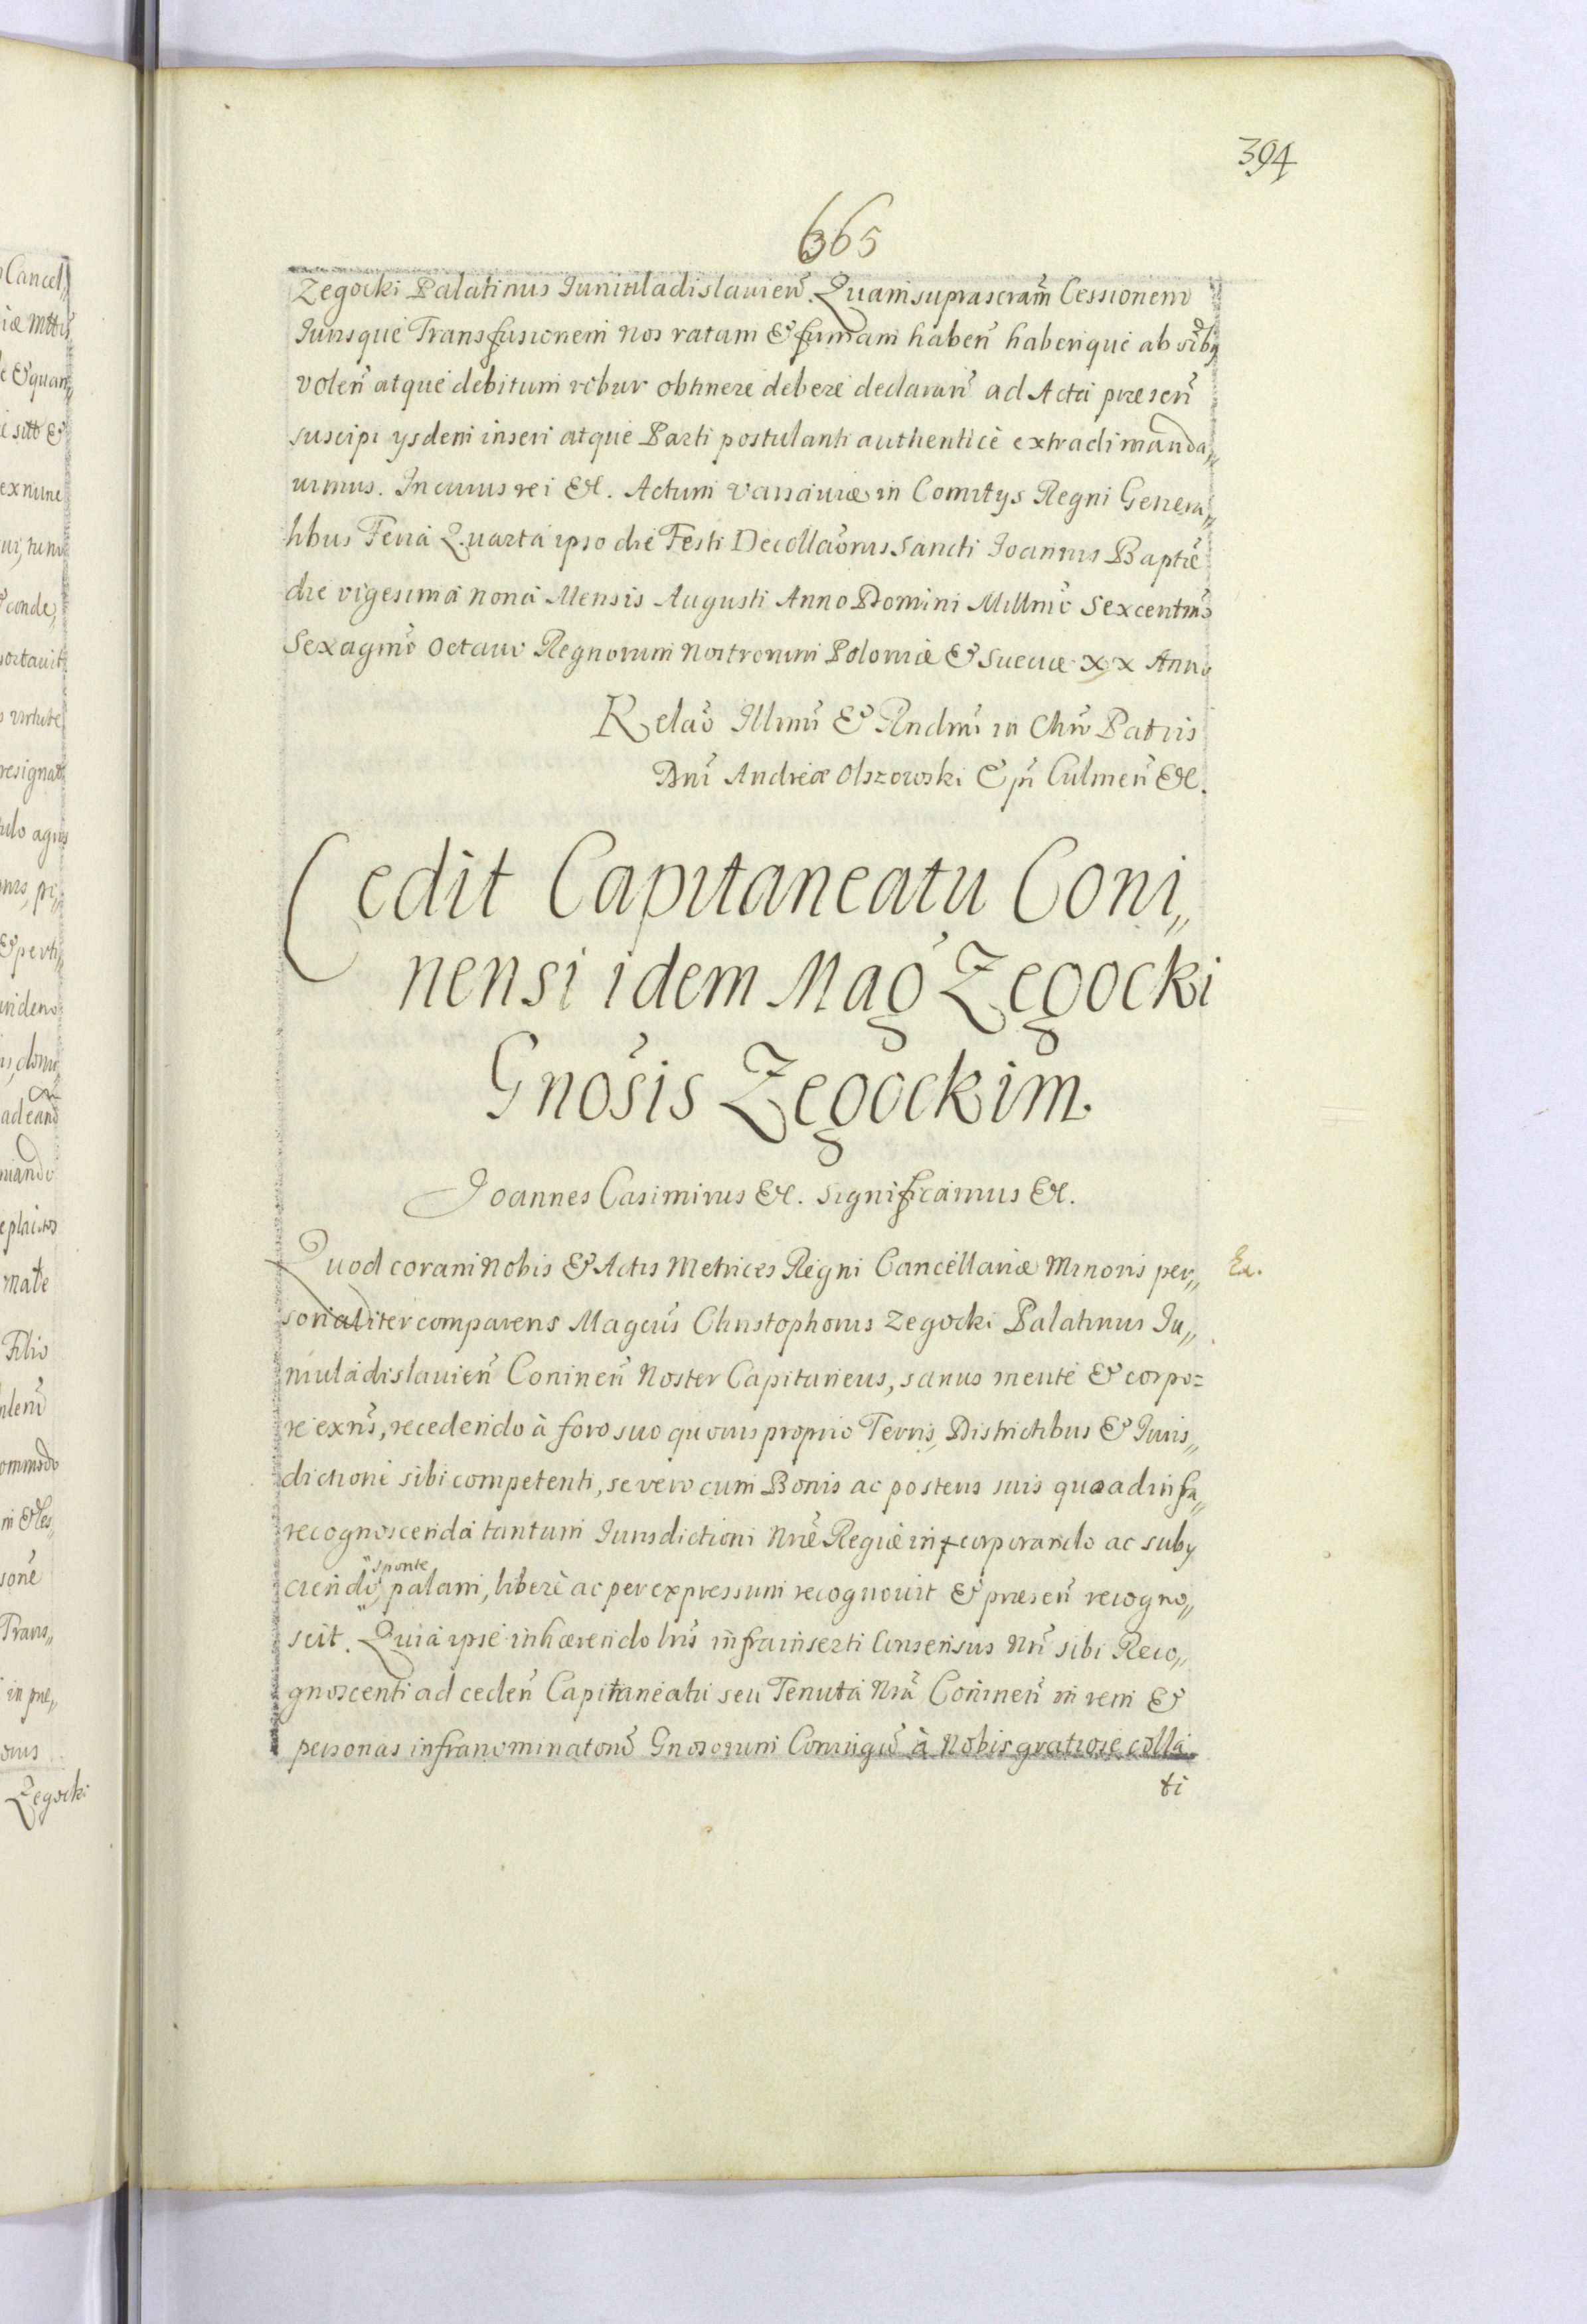 394
665
Zegocki Palatinus Juniuladislauien̄. Quam suprascrām Cessionem
Jurisque Transfusionem nos ratam & firmam haben̄ haberique ab oībꝫ
volen̄ atque debitum robur obtinere debere declaran̄ ad Acta præsen̄
suscipi ysdem inseri atque Parti postulanti authenticè extradi manda„
uimus. In cuius rei &c. Actum Varsauiæ in Comitys Regni Genera„
libus Feria Quarta ipso die Festi Decollaōnis Sancti Joannis Baptæ
die vigesima nona Mensis Augusti Anno Domini Millmō Sexcentmō
Sexagmō Octauo Regnorum nostrorum Poloniæ & Sueciæ XX Anno
Relaō Illmī & Rndmī in Chrō Patris
Dnī Andreæ Olszowski Epī Culmen̄ &c.
Cedit Capitaneatu Coni„
nensi idem Maḡ Zegocki
Gnōsis Zegockim.
Joannes Casimirus &c. Significamus &c.
Quod coram Nobis & Actis Metrices Regni Cancellariæ Minoris per„
Ex.
sonaliter comparens Magcūs Christophorus Zegocki Palatinus Ju„
niuladislauien̄ Coninen̄ Noster Capitaneus, sanus mente & corpo=
re exn̄s, recedendo à foro suo quouis proprio Terris, Districtibus & Juris„
dictione sibi competenti, se vero cum Bonis ac posteris suis quo ad infra„
recognoscenda tantum Jurisdictioni Nræ Regiæ incorporando ac suby
ciendo, sponte palam, liberè ac per expressum recognouit & præsen̄ recogno„
scit. Quia ipse inhærendo lrīs infrainserti Consensus Nrī sibi Reco„
gnoscenti ad ceden̄ Capitaneatu seu Tenuta Nrā Coninen̄ in rem &
personas infranominatorū Gnosorum Coniugū à Nobis gratiose colla
ti